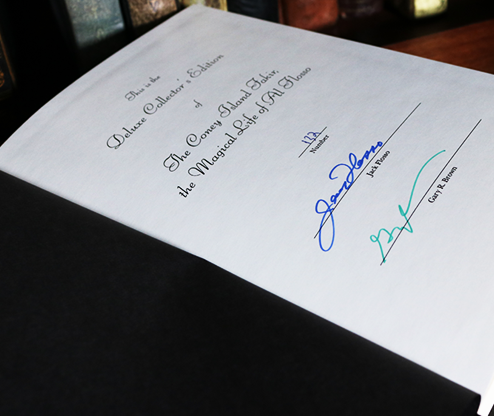 This is the
Deluxe Collector's Edition
of
The Coney Island Fakir,
the Magical Life of Al Flosso
Number
Jack Flosso
Gary R Brown